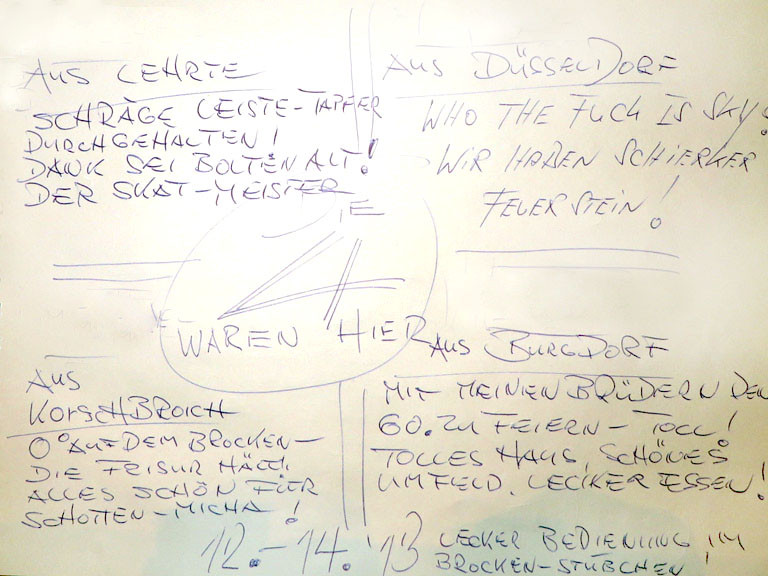 AUS LEHRTE
SCHRÄGE LEISTE-TAPFER
DURCHGEHALTEN!
DANK SEI BOLTEN ALT!
DER SKAT-MEISTER
AUS DÜSSELDORF
WHO THE FUCK IS SKY?
WIR HABEN SCHIERKER
FEUERSTEIN!
4
WAREN HIER
AUS
KORSCHBROICH
0° AUF DEM BROCKEN-
DIE FRISUR HÄLT.
ALLES SCHÖN FÜR
SCHOTTEN-MICHA!
AUS BURGDORF
MIT MEINEN BRÜDERN DEN
60. ZU FEIERN - TOLL!
TOLLES HAUS, SCHÖNES
UMFELD. LECKER ESSEN!
LECKER BEDIENUNG IM
BROCKEN-STÜBCHEN!
12.-14. '13